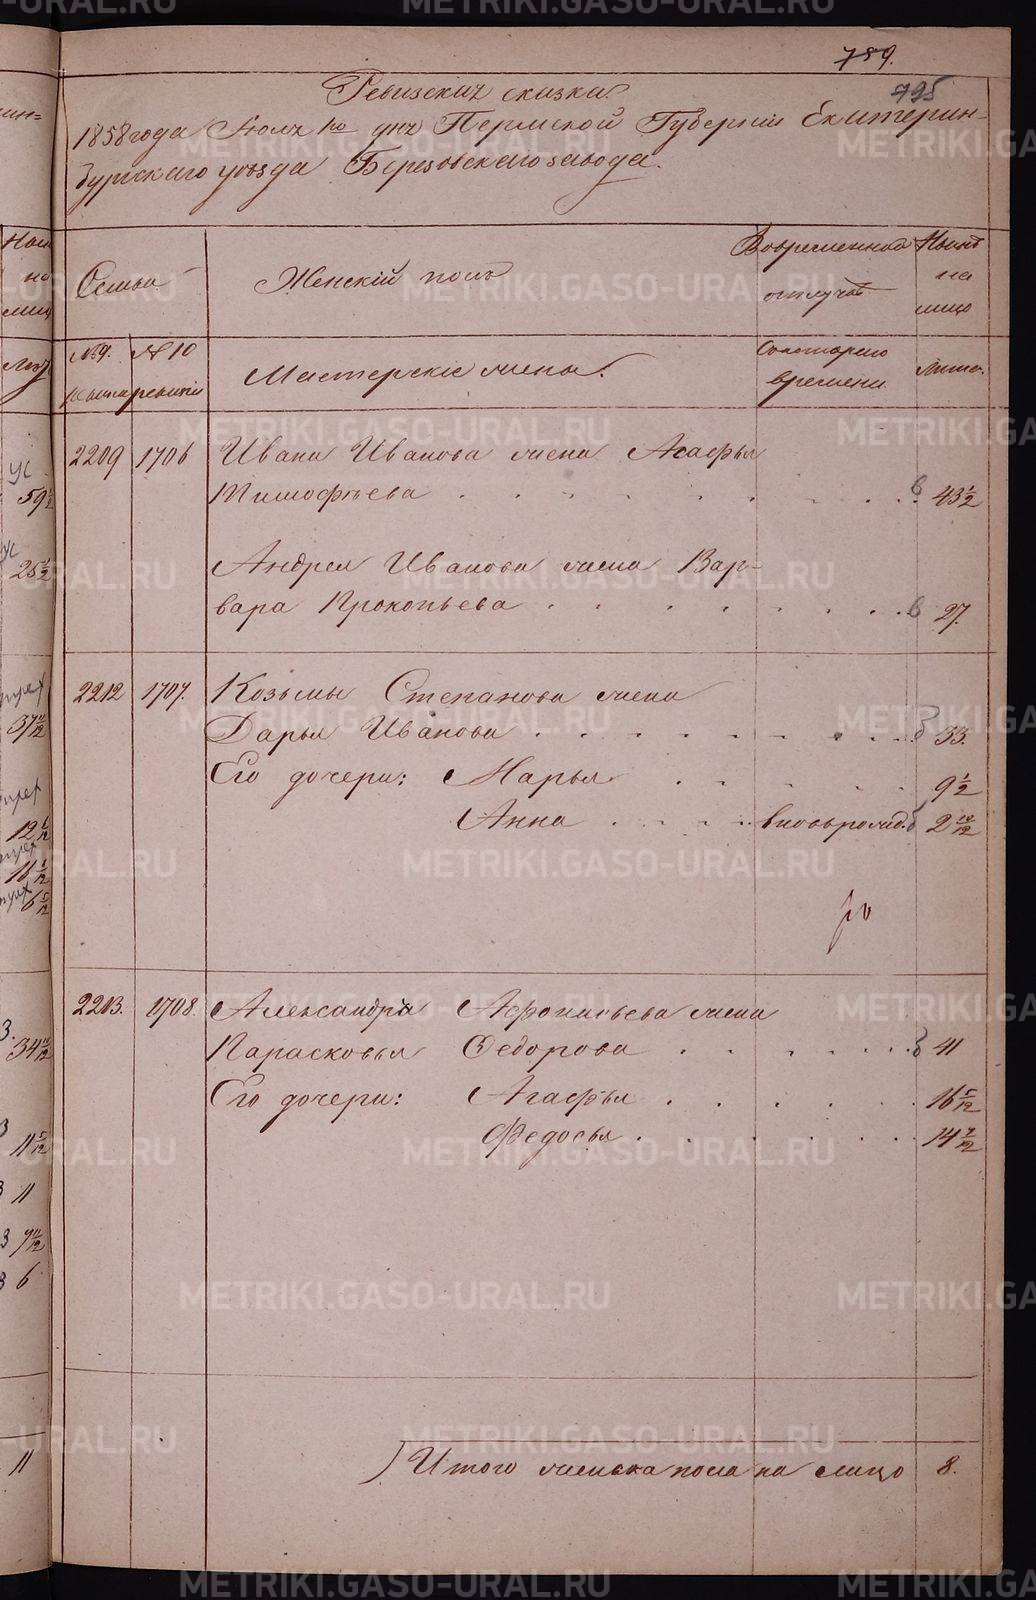 789.
795
Ревизская сказка.
1858 года Июля 1го дня Пермской Губернии Екатерин-
бургскаго уезда Березовскаго завода.
Семьи
Женский полъ
Во временной отлучке
Ныне на лицо
№ 9.
№ 10
ревизии
Мастерские жены.
Съ котораго времени
Лета.
2209 1706 Ивана Иванова жена Агафья
Тимофеева . . . . . . . . в 43 1/2
Андрея Иванова жена Вар-
вара Прокопьева . . . . . . . в 27.
2212 1707. Козьмы Степанова жена
Дарья Иванова . . . . . . . . 33.
Его дочери: Марья . . . . 9 1/2
Анна . . . . вновьрожд. 2 10/12
2213. 1708. Александра Афонасьева жена
Парасковья Федорова . . . . . . 41
Его дочери: Агафья . . . . . . 16 5/12
Федосья . . . . . . . 14 7/12
Итого женска пола на лицо 8.
METRIKI.GASO-URAL.RU